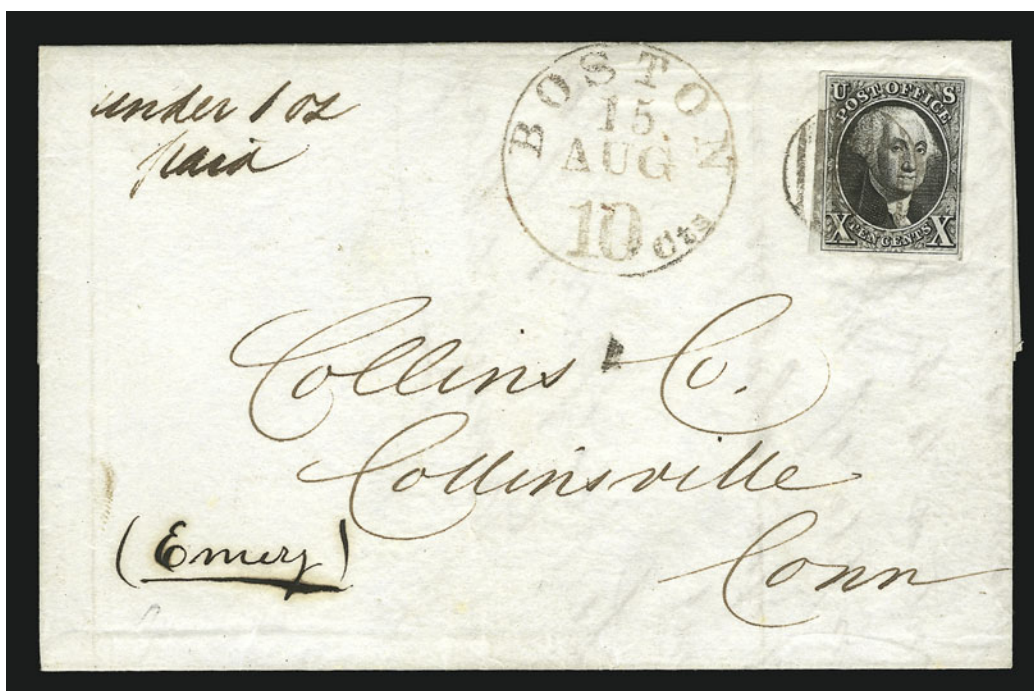 under 1 oz
paid
BOSTON
15
AUG
10 Cts
U S
POST OFFICE
X TEN CENTS X
Collins Co.
Collinsville
Conn
(Emery)